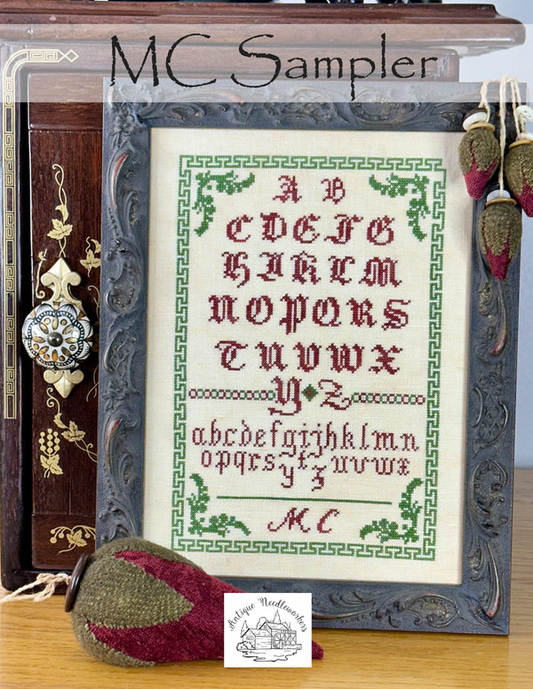 MC Sampler
A B
CDEFG
HIKLM
NOPQRS
TUVWX
Y Z
abcdefgijhklmn
opqrst uvwx
y z
MC
Antique Needleworkers